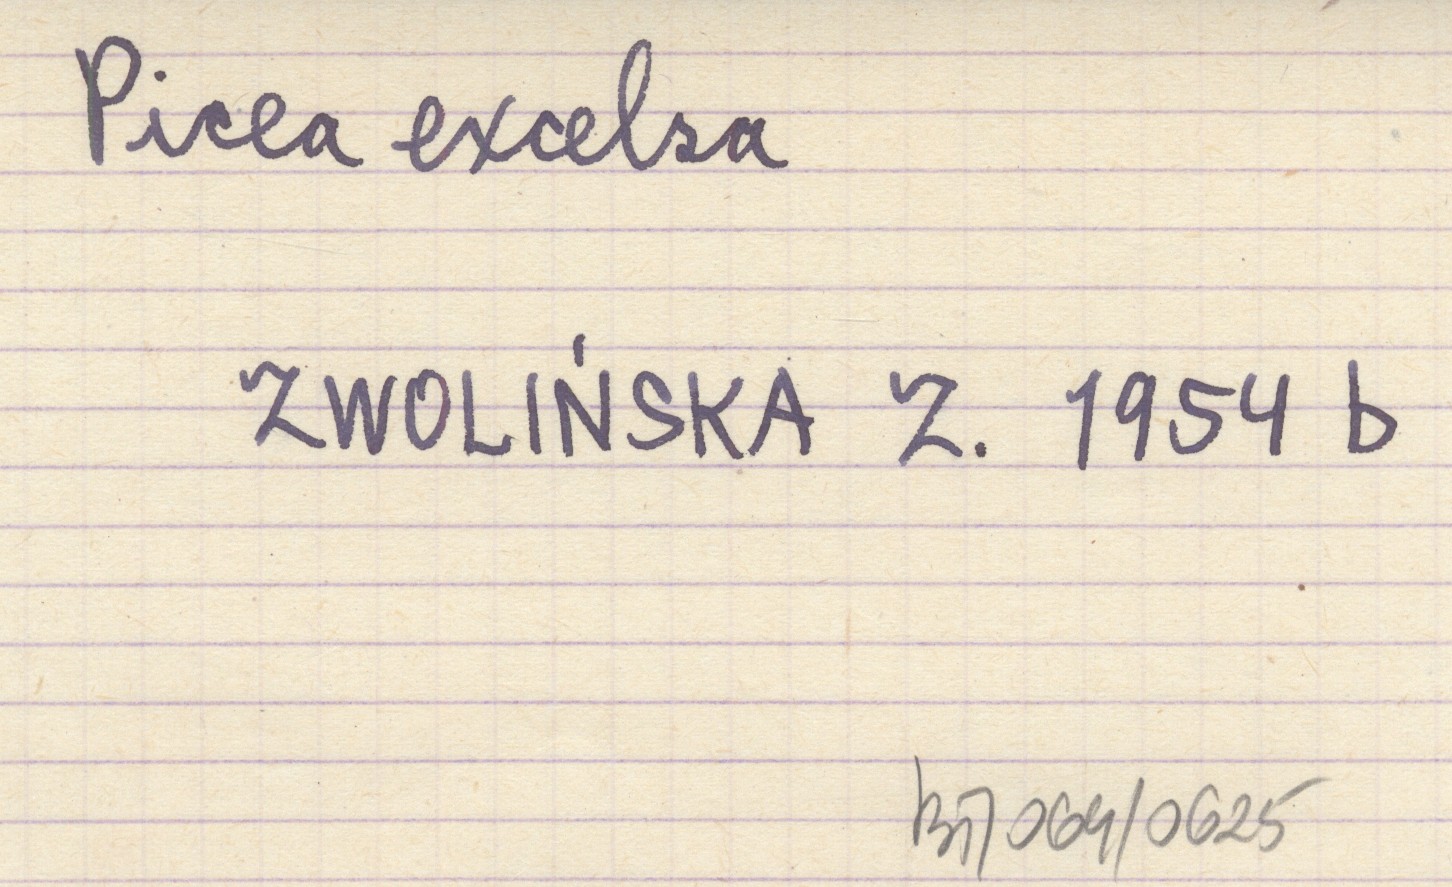 Picea excelsa
ZWOLIŃSKA Z. 1954 b
064/0625